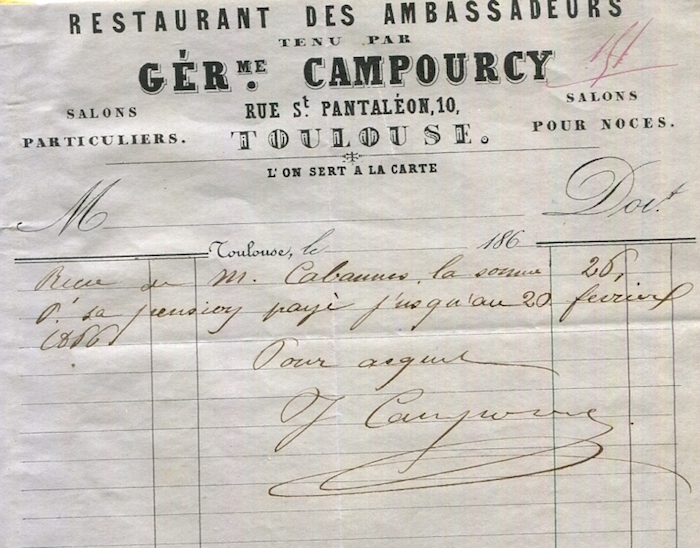 RESTAURANT DES AMBASSADEURS
TENU PAR
GÉR.ME CAMPOURCY
SALONS PARTICULIERS.
RUE ST PANTALÉON, 10,
TOULOUSE.
SALONS POUR NOCES.
L'ON SERT A LA CARTE
M Doit
Toulouse, le 186
Recu de M. Cabannes, la somme 26,
P.r sa pension payé jusqu'au 20 fevrier
1866
Pour acquit
J Campourcy